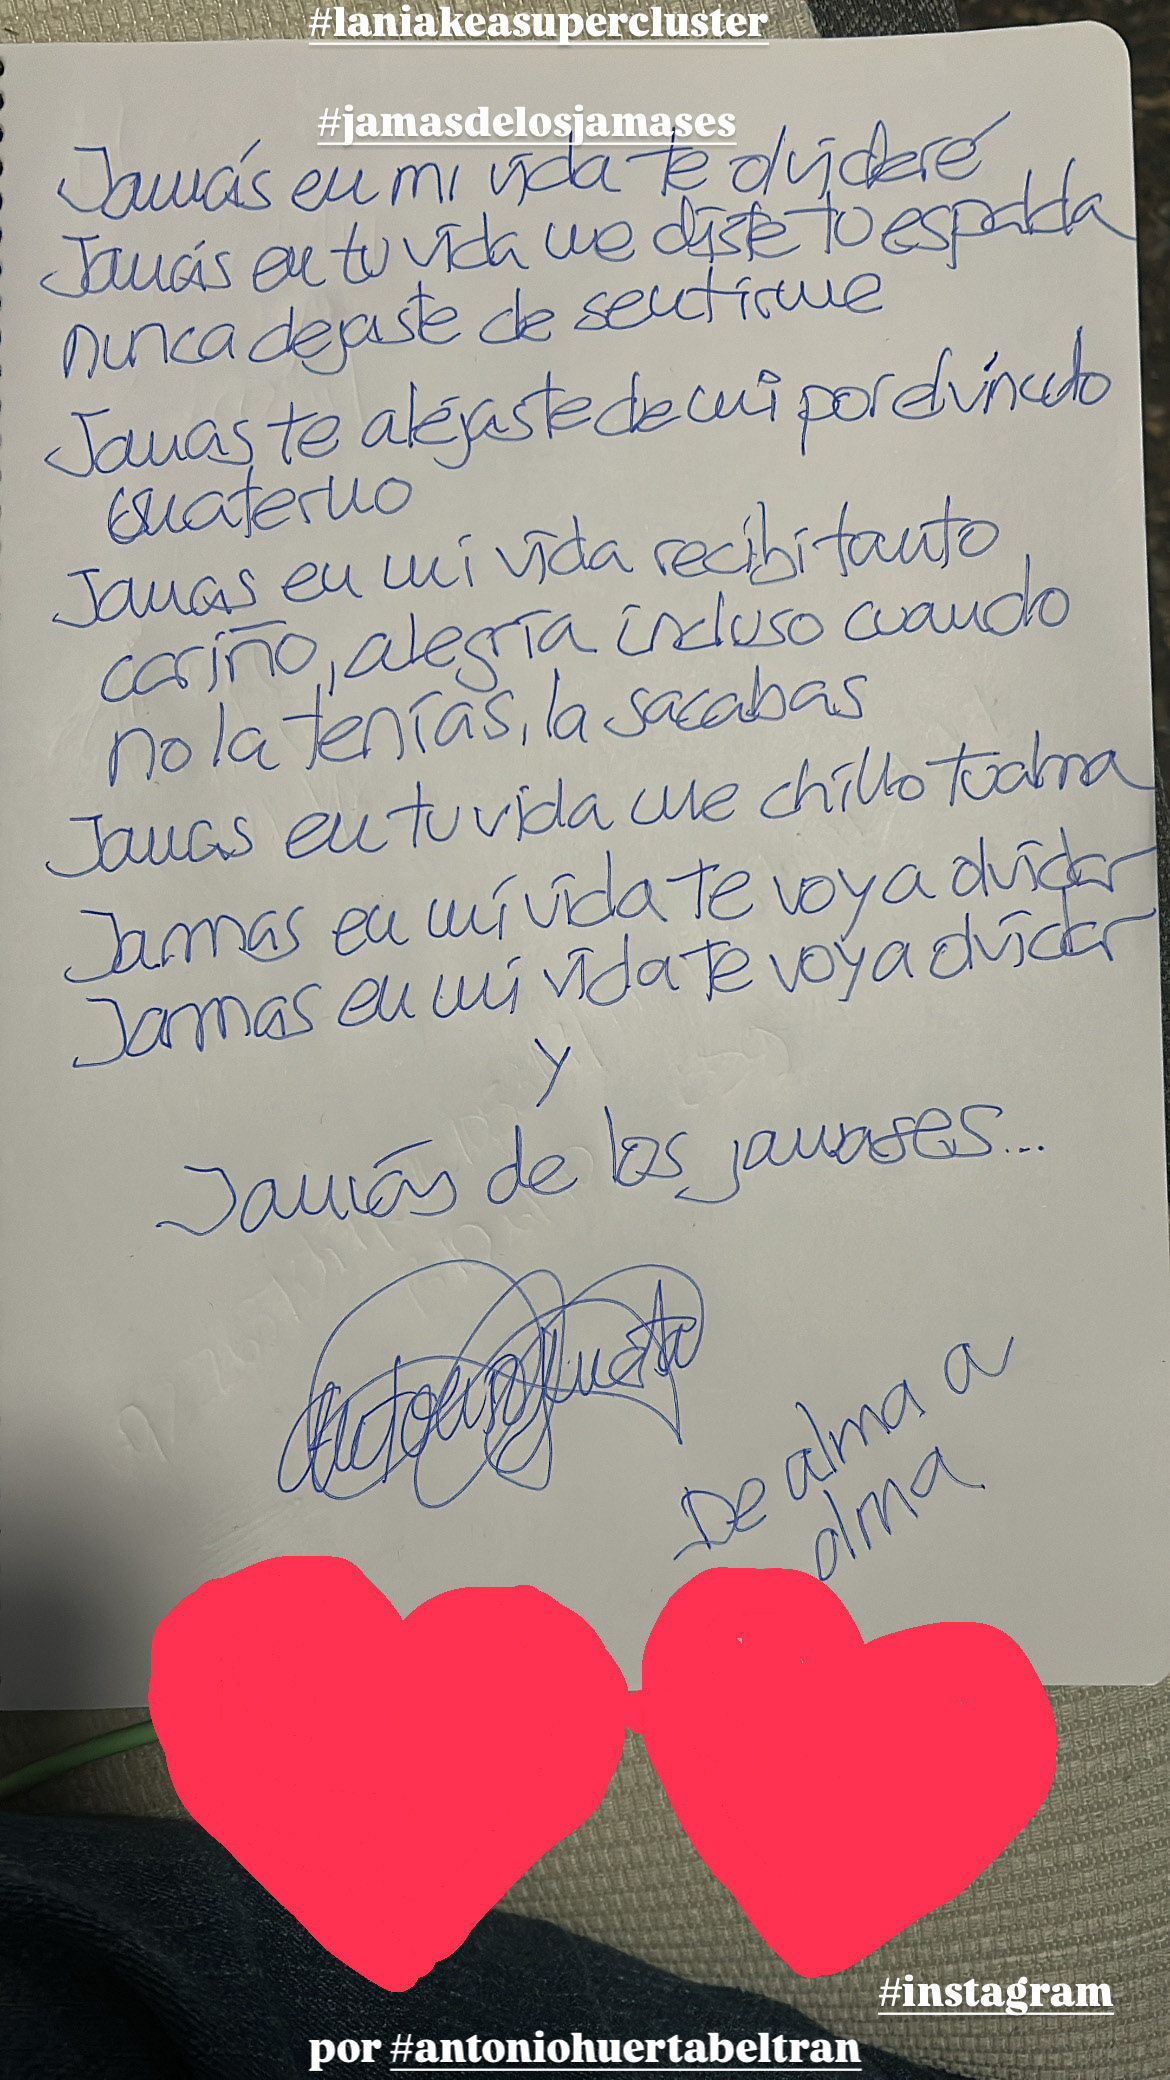 #laniakeasupercluster
#jamasdelosjamases
Jamás en mi vida te olvideré
Jamás en tu vida me diste tu espalda
nunca dejaste de sentirme
Jamas te alejaste de mi por el vínculo
materno
Jamas en mi vida recibi tanto
cariño, alegría incluso cuando
no la tenías, la sacabas
Jamas en tu vida me chillo tu alma
Jamas en mi vida te voy a olvidar
Jamas en mi vida te voy a olvidar
y
Jamás de los jamases...
Antonio Huerta
De alma a
alma
#instagram
por #antoniohuertabeltran